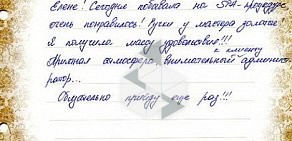 Елене! Сегодня побывала на SPA-процедуре
очень понравилось! Ручки у мастера золотые!
Я получила массу удовольствия!!!
к клиенту
Приятная атмосфера, внимательный админист
ратор...
Обязательно приеду еще раз!!!